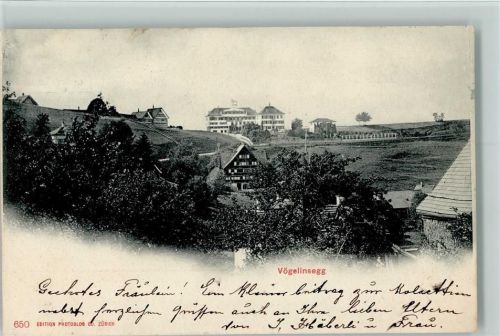 Vögelinsegg
Geehrtes Fräulein! Ein kleiner beitrag zur Collection
nebst herzlichen Grüssen auch an Ihre lieben Eltern
650 EDITION PHOTOGLOB CO. ZÜRICH
von J. u. Frau.